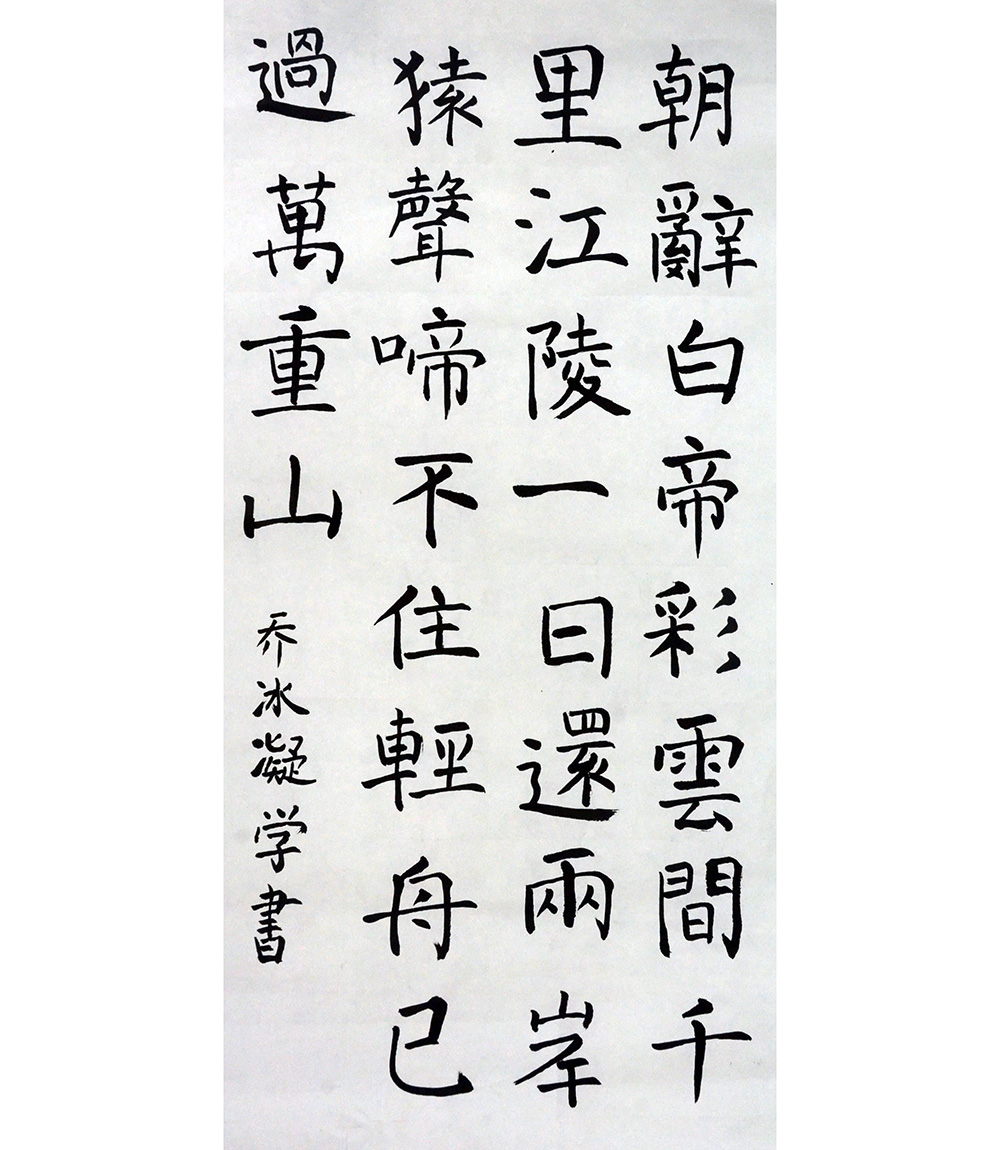 朝辭白帝彩雲間千
里江陵一日還兩岸
猿聲啼不住輕舟已
過萬重山
乔冰凝学書